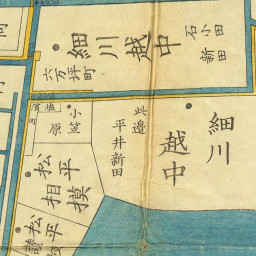 細川越中
石小田
新田
六万坪町
細川
越中
此邉
平井新田
小笠
原
松平
相模
松平